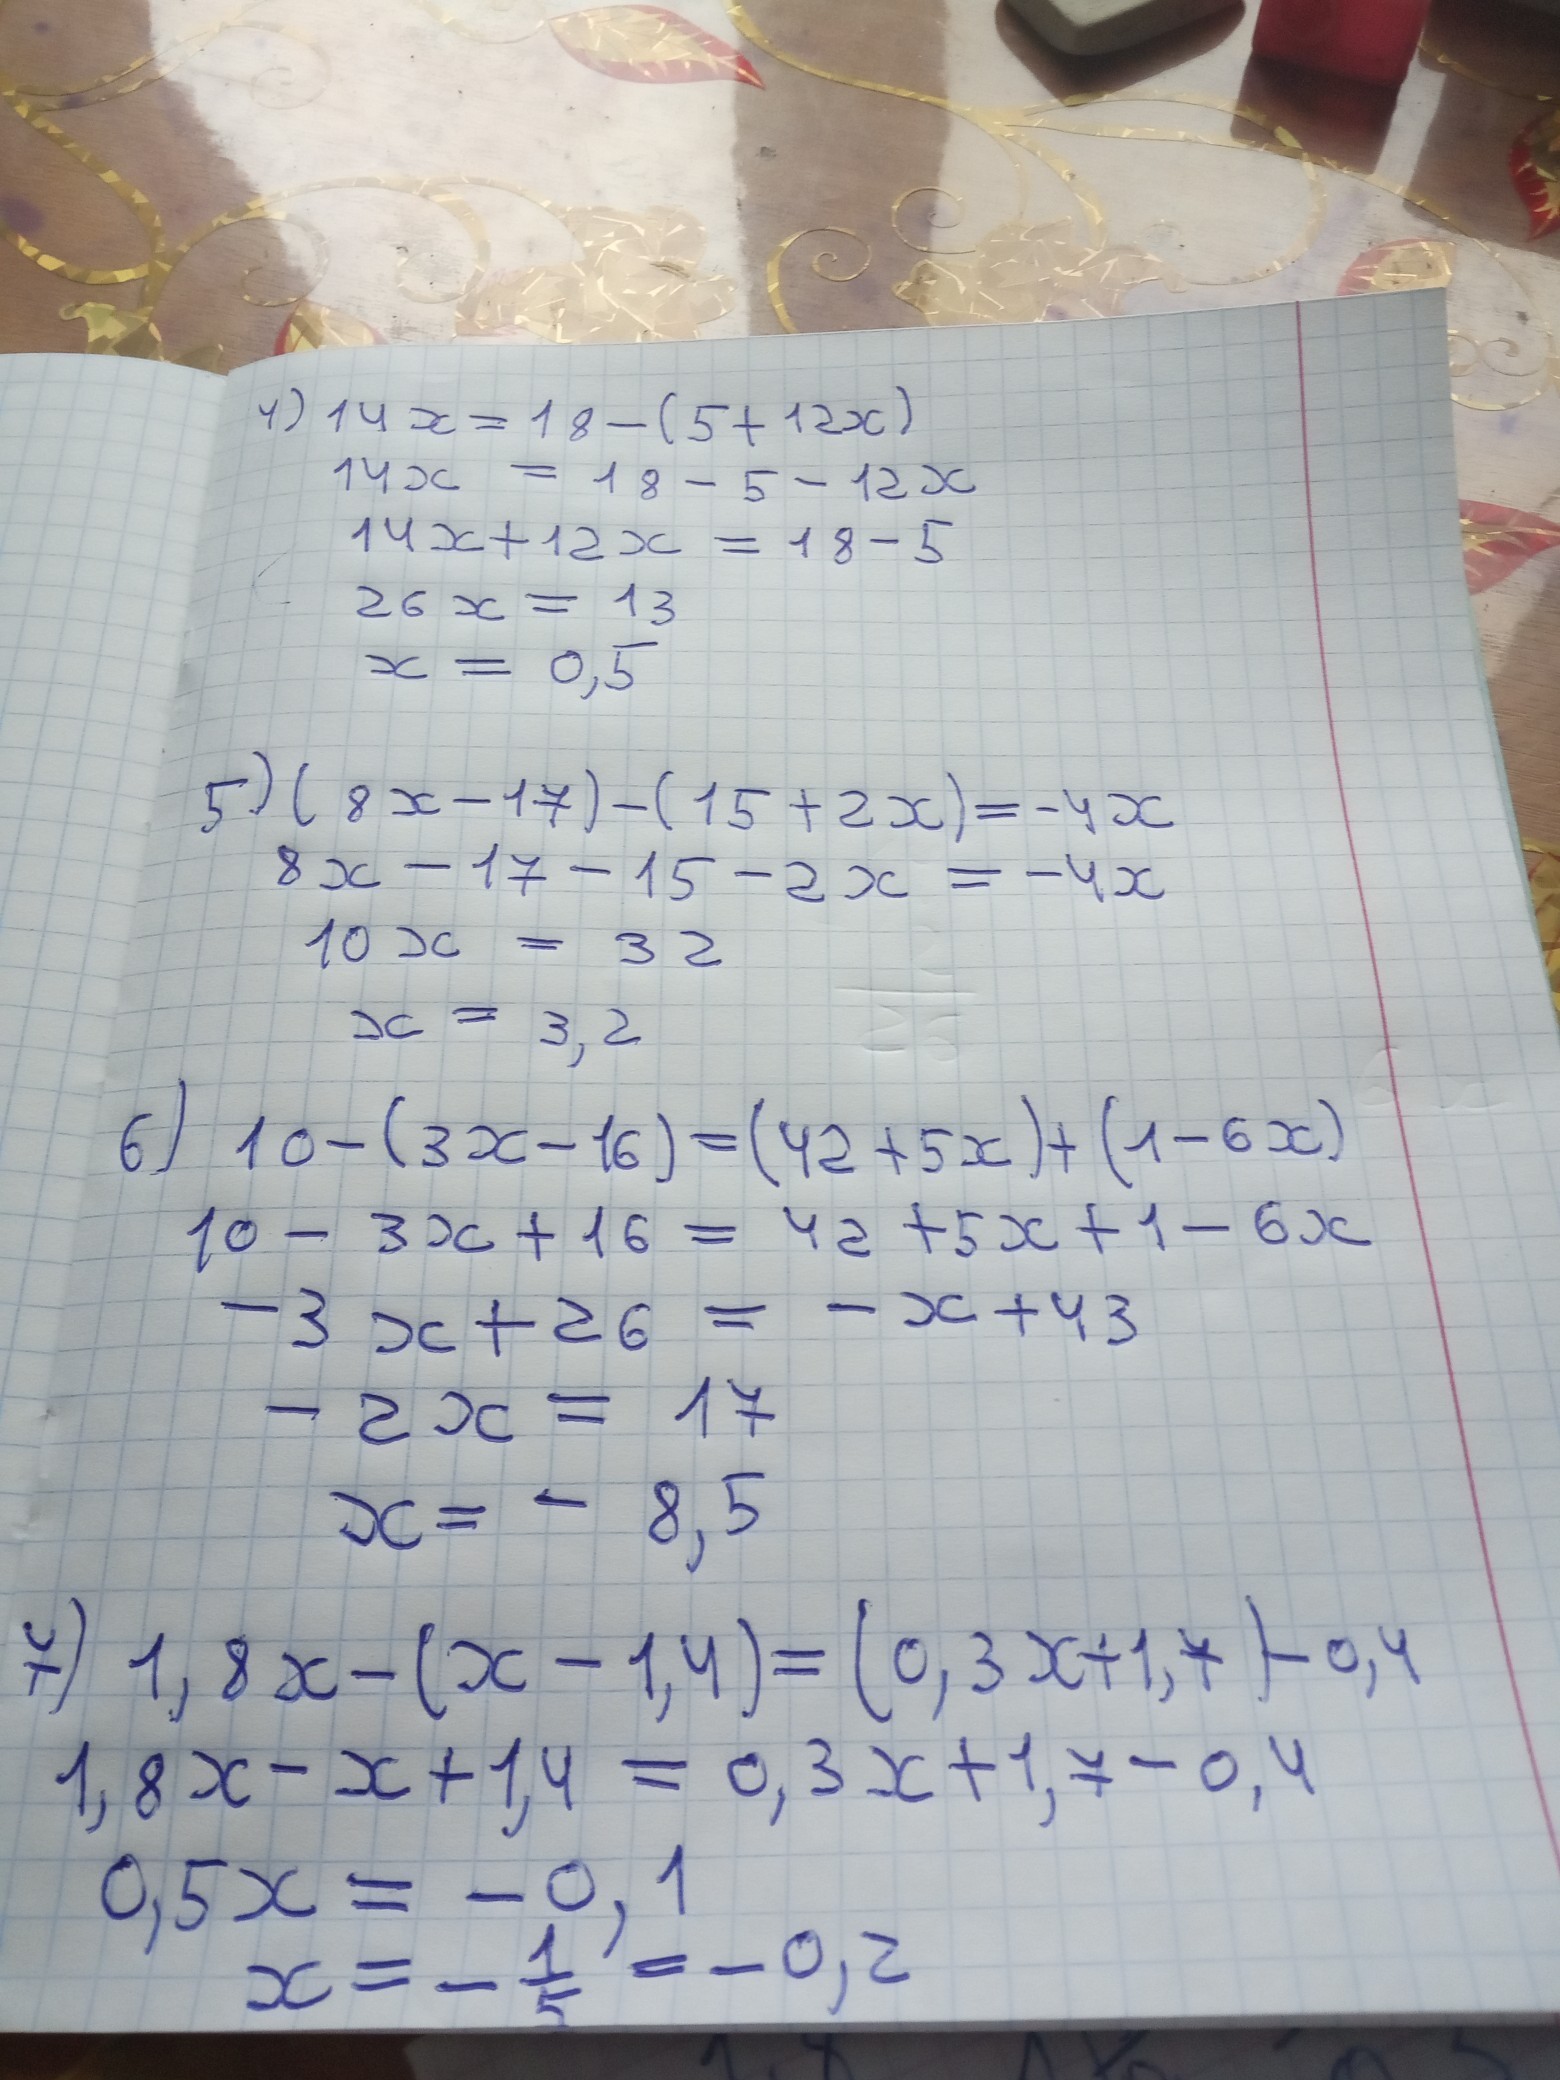 4) 14x = 18 - (5 + 12x)
14x = 18 - 5 - 12x
14x + 12x = 18 - 5
26x = 13
x = 0,5
5) (8x - 17) - (15 + 2x) = -4x
8x - 17 - 15 - 2x = -4x
10x = 32
x = 3,2
6) 10 - (3x - 16) = (42 + 5x) + (1 - 6x)
10 - 3x + 16 = 42 + 5x + 1 - 6x
-3x + 26 = -x + 43
-2x = 17
x = -8,5
7) 1,8x - (x - 1,4) = (0,3x + 1,7) - 0,4
1,8x - x + 1,4 = 0,3x + 1,7 - 0,4
0,5x = -0,1
x = -1/5 = -0,2